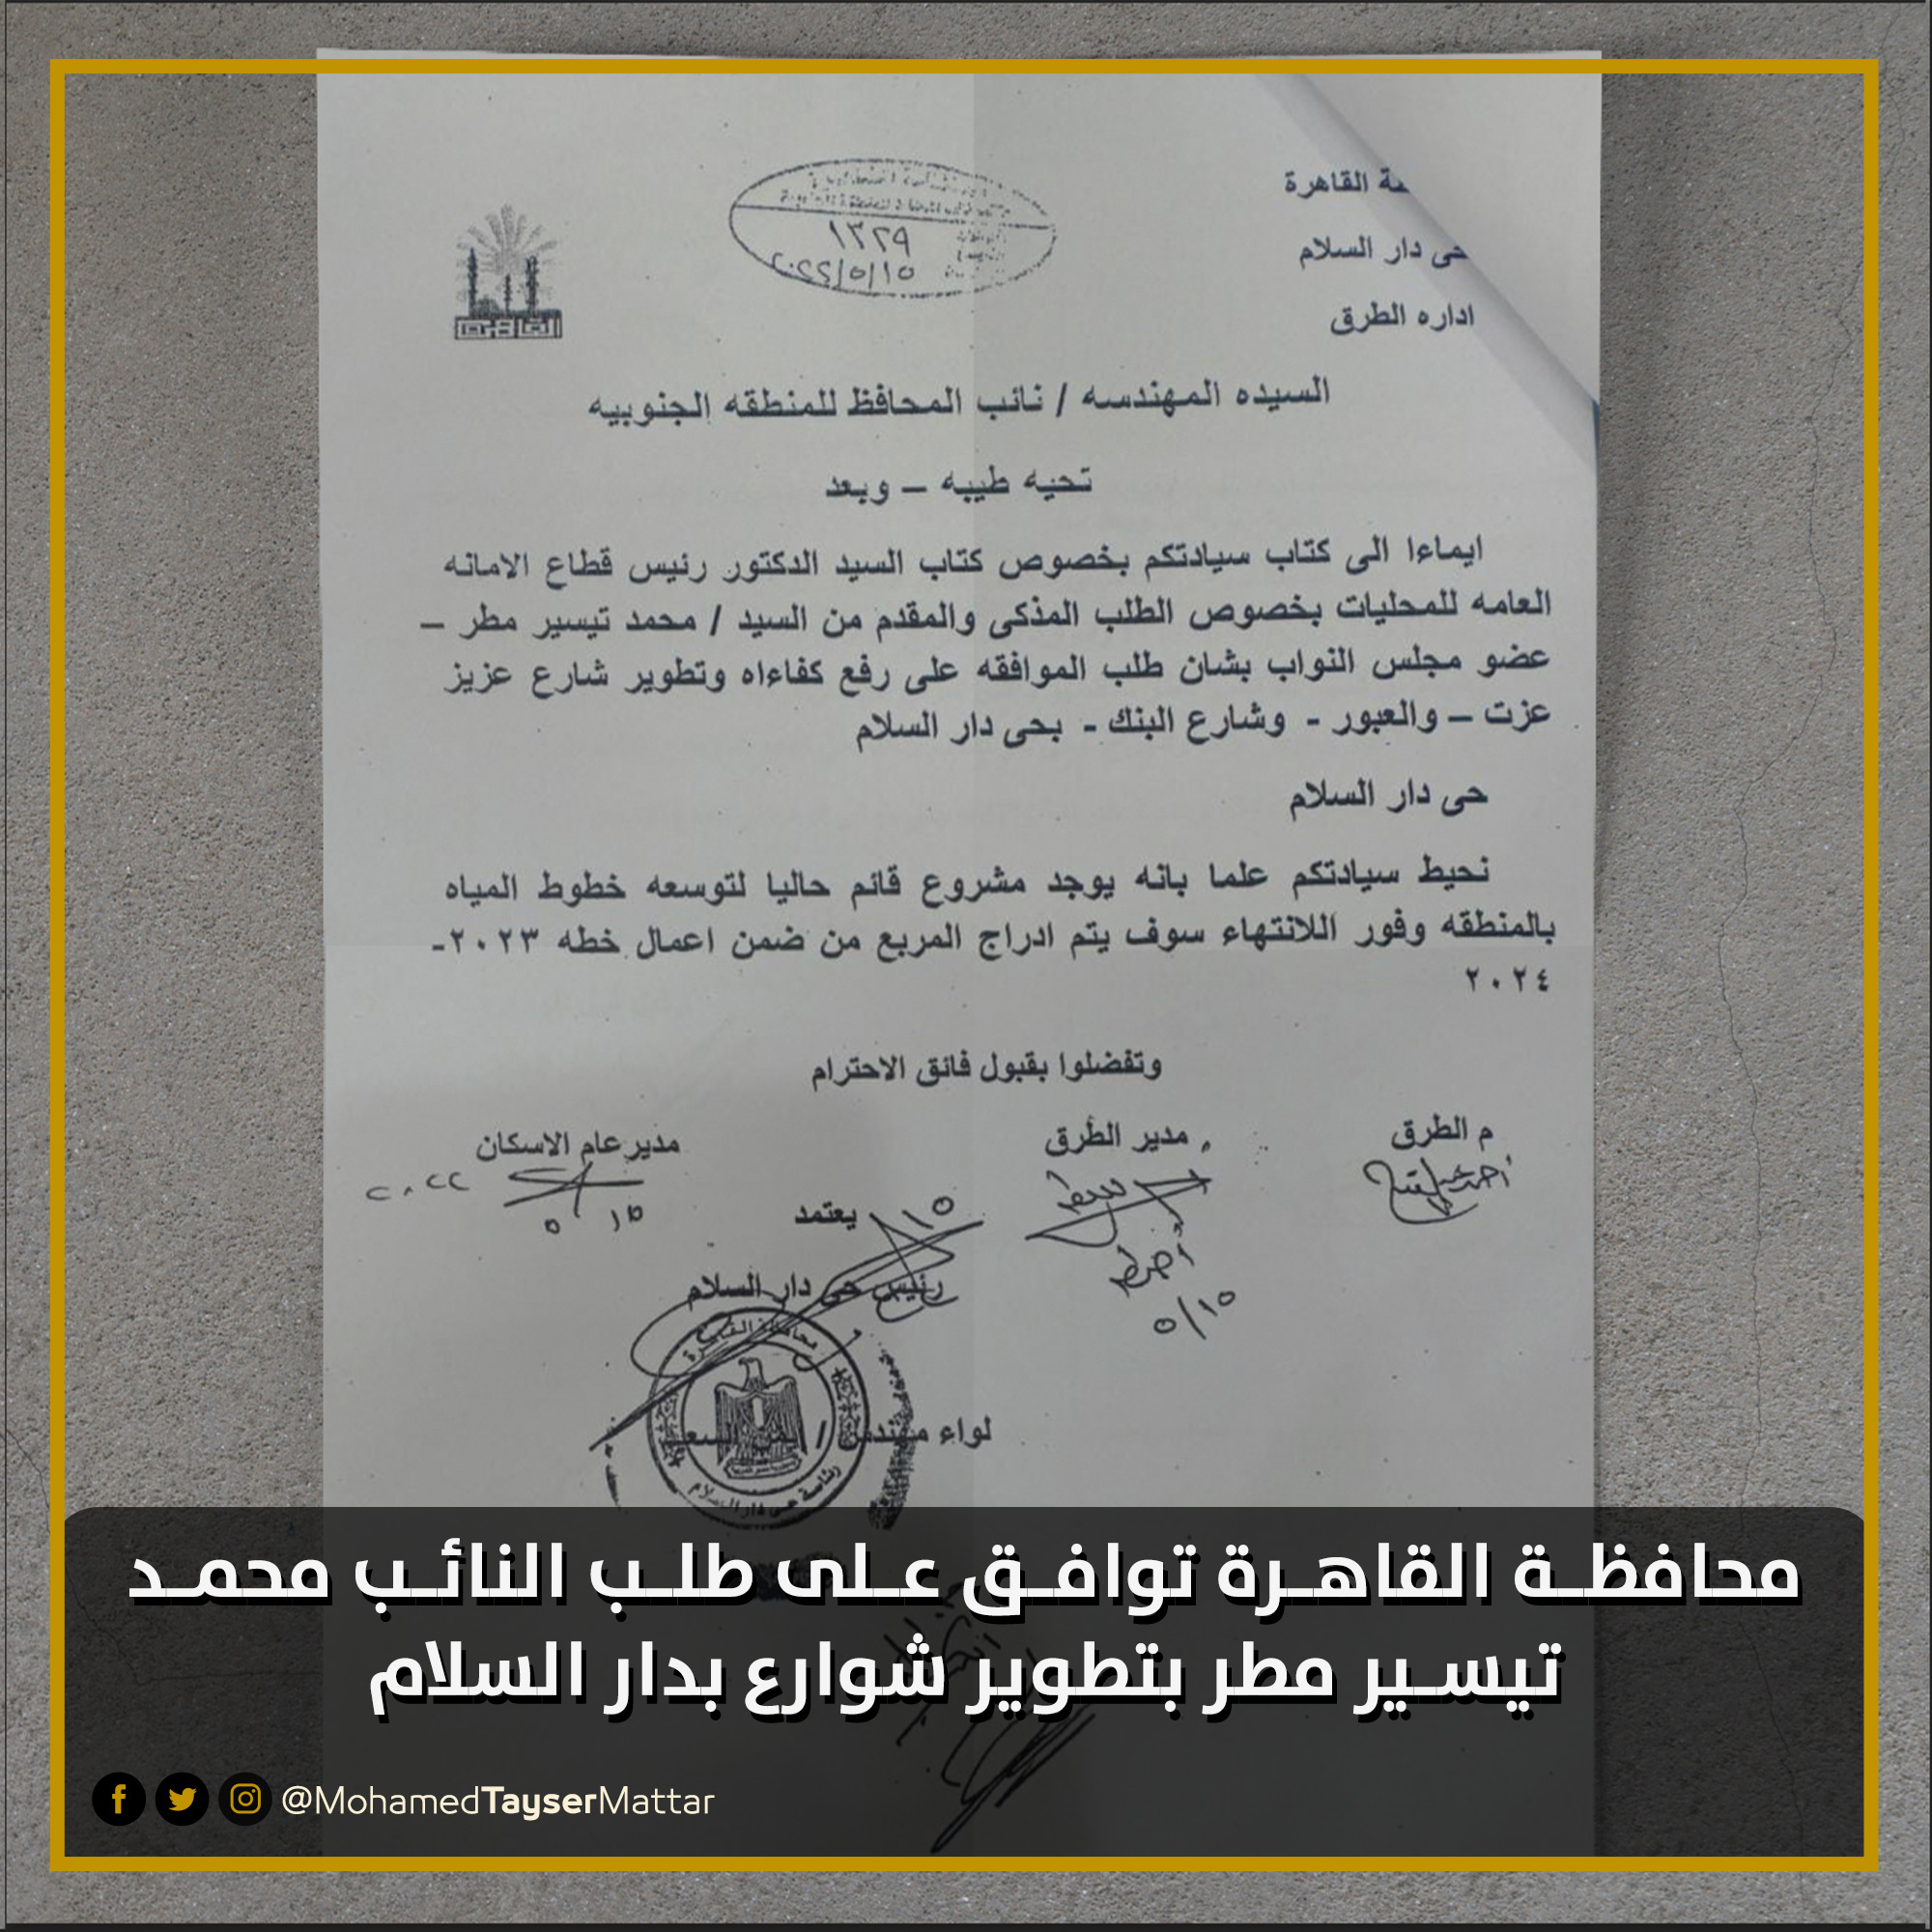 ـة القاهرة
حى دار السلام
اداره الطرق
القاهرة
١٣٢٩
٢٠٢٢/٥/١٥
السيده المهندسه / نائب المحافظ للمنطقه الجنوبيه
تحيه طيبه – وبعد
ايماءا الى كتاب سيادتكم بخصوص كتاب السيد الدكتور رئيس قطاع الامانه
العامه للمحليات بخصوص الطلب المذكى والمقدم من السيد / محمد تيسير مطر –
عضو مجلس النواب بشان طلب الموافقه على رفع كفاءاه وتطوير شارع عزيز
عزت – والعبور - وشارع البنك - بحى دار السلام
حى دار السلام
نحيط سيادتكم علما بانه يوجد مشروع قائم حاليا لتوسعه خطوط المياه
بالمنطقه وفور اللانتهاء سوف يتم ادراج المربع من ضمن اعمال خطه ٢٠٢٣-
٢٠٢٤
وتفضلوا بقبول فائق الاحترام
م الطرق
مدير الطرق
مدير عام الاسكان
٢٠٢٢
١٥ ٥
٥/١٥
يعتمد
رئيس حى دار السلام
محافظة القاهرة
رئاسة حى دار السلام
لواء مهندس /
محافظة القاهرة توافق على طلب النائب محمد
تيسير مطر بتطوير شوارع بدار السلام
@MohamedTayserMattar